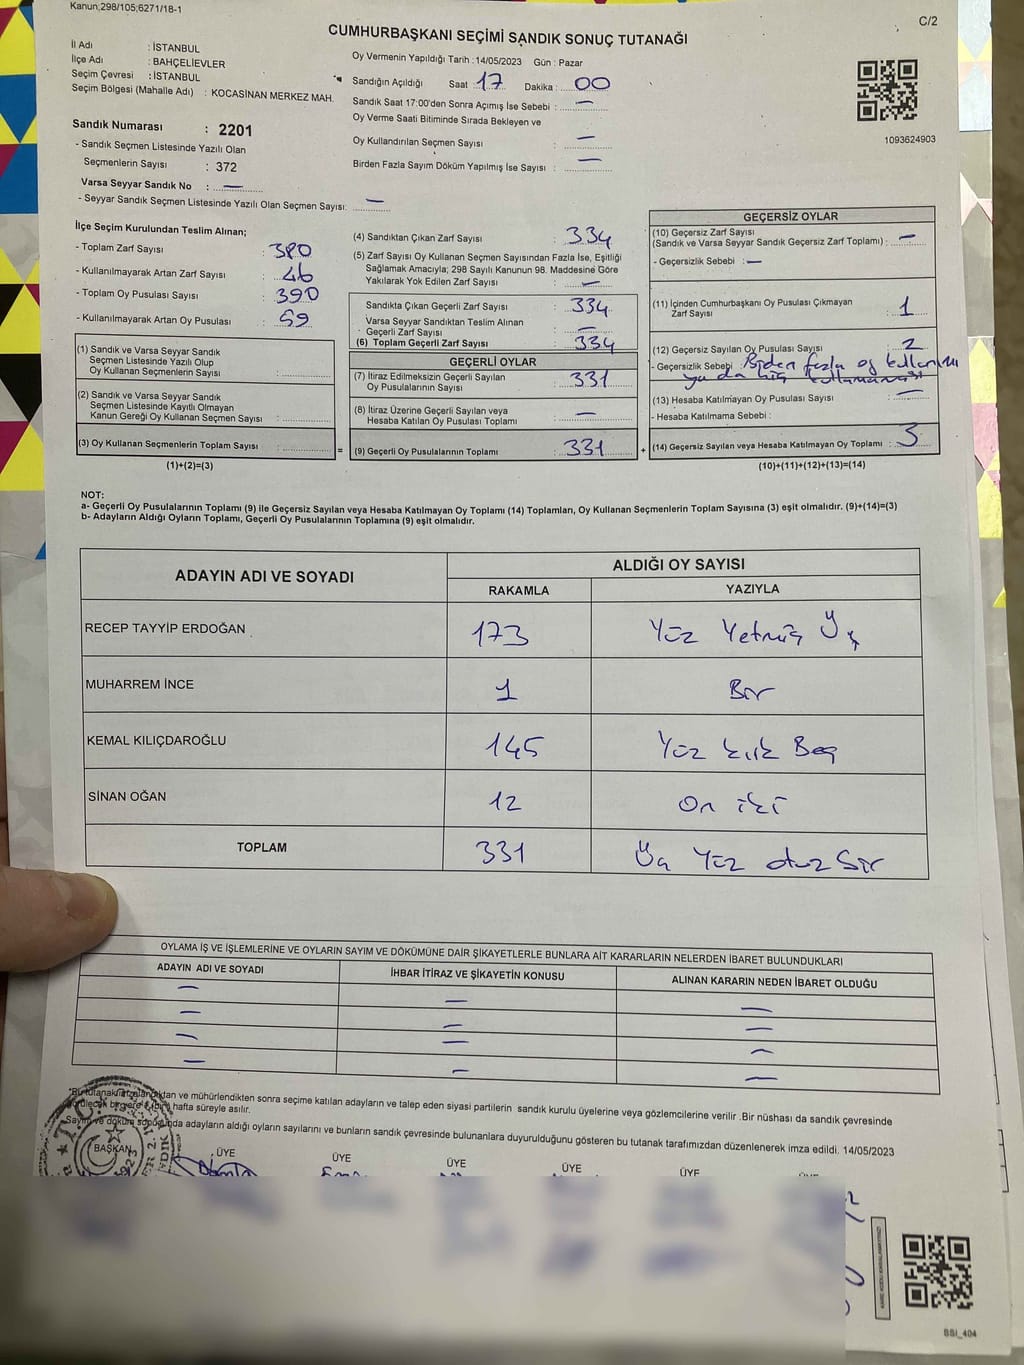 Kanun;298/105;6271/18-1
C/2
CUMHURBAŞKANI SEÇİMİ SANDIK SONUÇ TUTANAĞI
İl Adı : İSTANBUL
İlçe Adı : BAHÇELİEVLER
Seçim Çevresi : İSTANBUL
Seçim Bölgesi (Mahalle Adı) : KOCASİNAN MERKEZ MAH.
Oy Vermenin Yapıldığı Tarih : 14/05/2023 Gün : Pazar
Sandığın Açıldığı Saat : 17 Dakika : 00
Sandık Saat 17:00'den Sonra Açımış İse Sebebi : —
Oy Verme Saati Bitiminde Sırada Bekleyen ve
Oy Kullandırılan Seçmen Sayısı : —
Birden Fazla Sayım Döküm Yapılmış İse Sayısı : —
1093624903
Sandık Numarası : 2201
- Sandık Seçmen Listesinde Yazılı Olan
Seçmenlerin Sayısı : 372
Varsa Seyyar Sandık No : —
- Seyyar Sandık Seçmen Listesinde Yazılı Olan Seçmen Sayısı: —
İlçe Seçim Kurulundan Teslim Alınan;
- Toplam Zarf Sayısı : 380
- Kullanılmayarak Artan Zarf Sayısı : 46
- Toplam Oy Pusulası Sayısı : 390
- Kullanılmayarak Artan Oy Pusulası : 59
(1) Sandık ve Varsa Seyyar Sandık
Seçmen Listesinde Yazılı Olup
Oy Kullanan Seçmenlerin Sayısı :
(2) Sandık ve Varsa Seyyar Sandık
Seçmen Listesinde Kayıtlı Olmayan
Kanun Gereği Oy Kullanan Seçmen Sayısı :
(3) Oy Kullanan Seçmenlerin Toplam Sayısı :
(1)+(2)=(3)
(4) Sandıktan Çıkan Zarf Sayısı : 334
(5) Zarf Sayısı Oy Kullanan Seçmen Sayısından Fazla İse, Eşitliği
Sağlamak Amacıyla; 298 Sayılı Kanunun 98. Maddesine Göre
Yakılarak Yok Edilen Zarf Sayısı : —
Sandıkta Çıkan Geçerli Zarf Sayısı : 334
Varsa Seyyar Sandıktan Teslim Alınan
Geçerli Zarf Sayısı : —
(6) Toplam Geçerli Zarf Sayısı : 334
GEÇERLİ OYLAR
(7) İtiraz Edilmeksizin Geçerli Sayılan
Oy Pusulalarının Sayısı : 331
(8) İtiraz Üzerine Geçerli Sayılan veya
Hesaba Katılan Oy Pusulası Toplamı : —
= (9) Geçerli Oy Pusulalarının Toplamı : 331 +
GEÇERSİZ OYLAR
(10) Geçersiz Zarf Sayısı
(Sandık ve Varsa Seyyar Sandık Geçersiz Zarf Toplamı) : —
- Geçersizlik Sebebi : —
(11) İçinden Cumhurbaşkanı Oy Pusulası Çıkmayan
Zarf Sayısı : 1
(12) Geçersiz Sayılan Oy Pusulası Sayısı : 2
- Geçersizlik Sebebi : Biden fazla oy kullanımı
ya da hiç kullanmaması
(13) Hesaba Katılmayan Oy Pusulası Sayısı : —
- Hesaba Katılmama Sebebi :
(14) Geçersiz Sayılan veya Hesaba Katılmayan Oy Toplamı : 3
(10)+(11)+(12)+(13)=(14)
NOT:
a- Geçerli Oy Pusulalarının Toplamı (9) ile Geçersiz Sayılan veya Hesaba Katılmayan Oy Toplamı (14) Toplamları, Oy Kullanan Seçmenlerin Toplam Sayısına (3) eşit olmalıdır. (9)+(14)=(3)
b- Adayların Aldığı Oyların Toplamı, Geçerli Oy Pusulalarının Toplamına (9) eşit olmalıdır.
ADAYIN ADI VE SOYADI ALDIĞI OY SAYISI
RAKAMLA YAZIYLA
RECEP TAYYİP ERDOĞAN 173 Yüz Yetmiş Üç
MUHARREM İNCE 1 Bir
KEMAL KILIÇDAROĞLU 145 Yüz kırk Beş
SİNAN OĞAN 12 On iki
TOPLAM 331 Üç Yüz otuz bir
OYLAMA İŞ VE İŞLEMLERİNE VE OYLARIN SAYIM VE DÖKÜMÜNE DAİR ŞİKAYETLERLE BUNLARA AİT KARARLARIN NELERDEN İBARET BULUNDUKLARI
ADAYIN ADI VE SOYADI İHBAR İTİRAZ VE ŞİKAYETİN KONUSU ALINAN KARARIN NEDEN İBARET OLDUĞU
— — —
— — —
— — —
— — —
ve mühürlendikten sonra seçime katılan adayların ve talep eden siyasi partilerin sandık kurulu üyelerine veya gözlemcilerine verilir .Bir nüshası da sandık çevresinde
hafta süreyle asılır.
adayların aldığı oyların sayılarını ve bunların sandık çevresinde bulunanlara duyurulduğunu gösteren bu tutanak tarafımızdan düzenlenerek imza edildi. 14/05/2023
BAŞKAN ÜYE ÜYE ÜYE ÜYE ÜYE
BSI_404